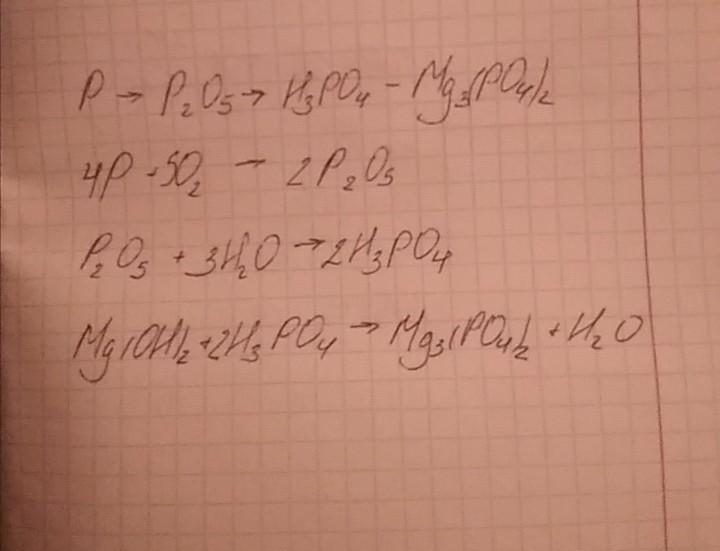 P → P₂O₅ → H₃PO₄ – Mg₃(PO₄)₂
4P + 5O₂ → 2P₂O₅
P₂O₅ + 3H₂O → 2H₃PO₄
Mg(OH)₂ + 2H₃PO₄ → Mg₃(PO₄)₂ + H₂O